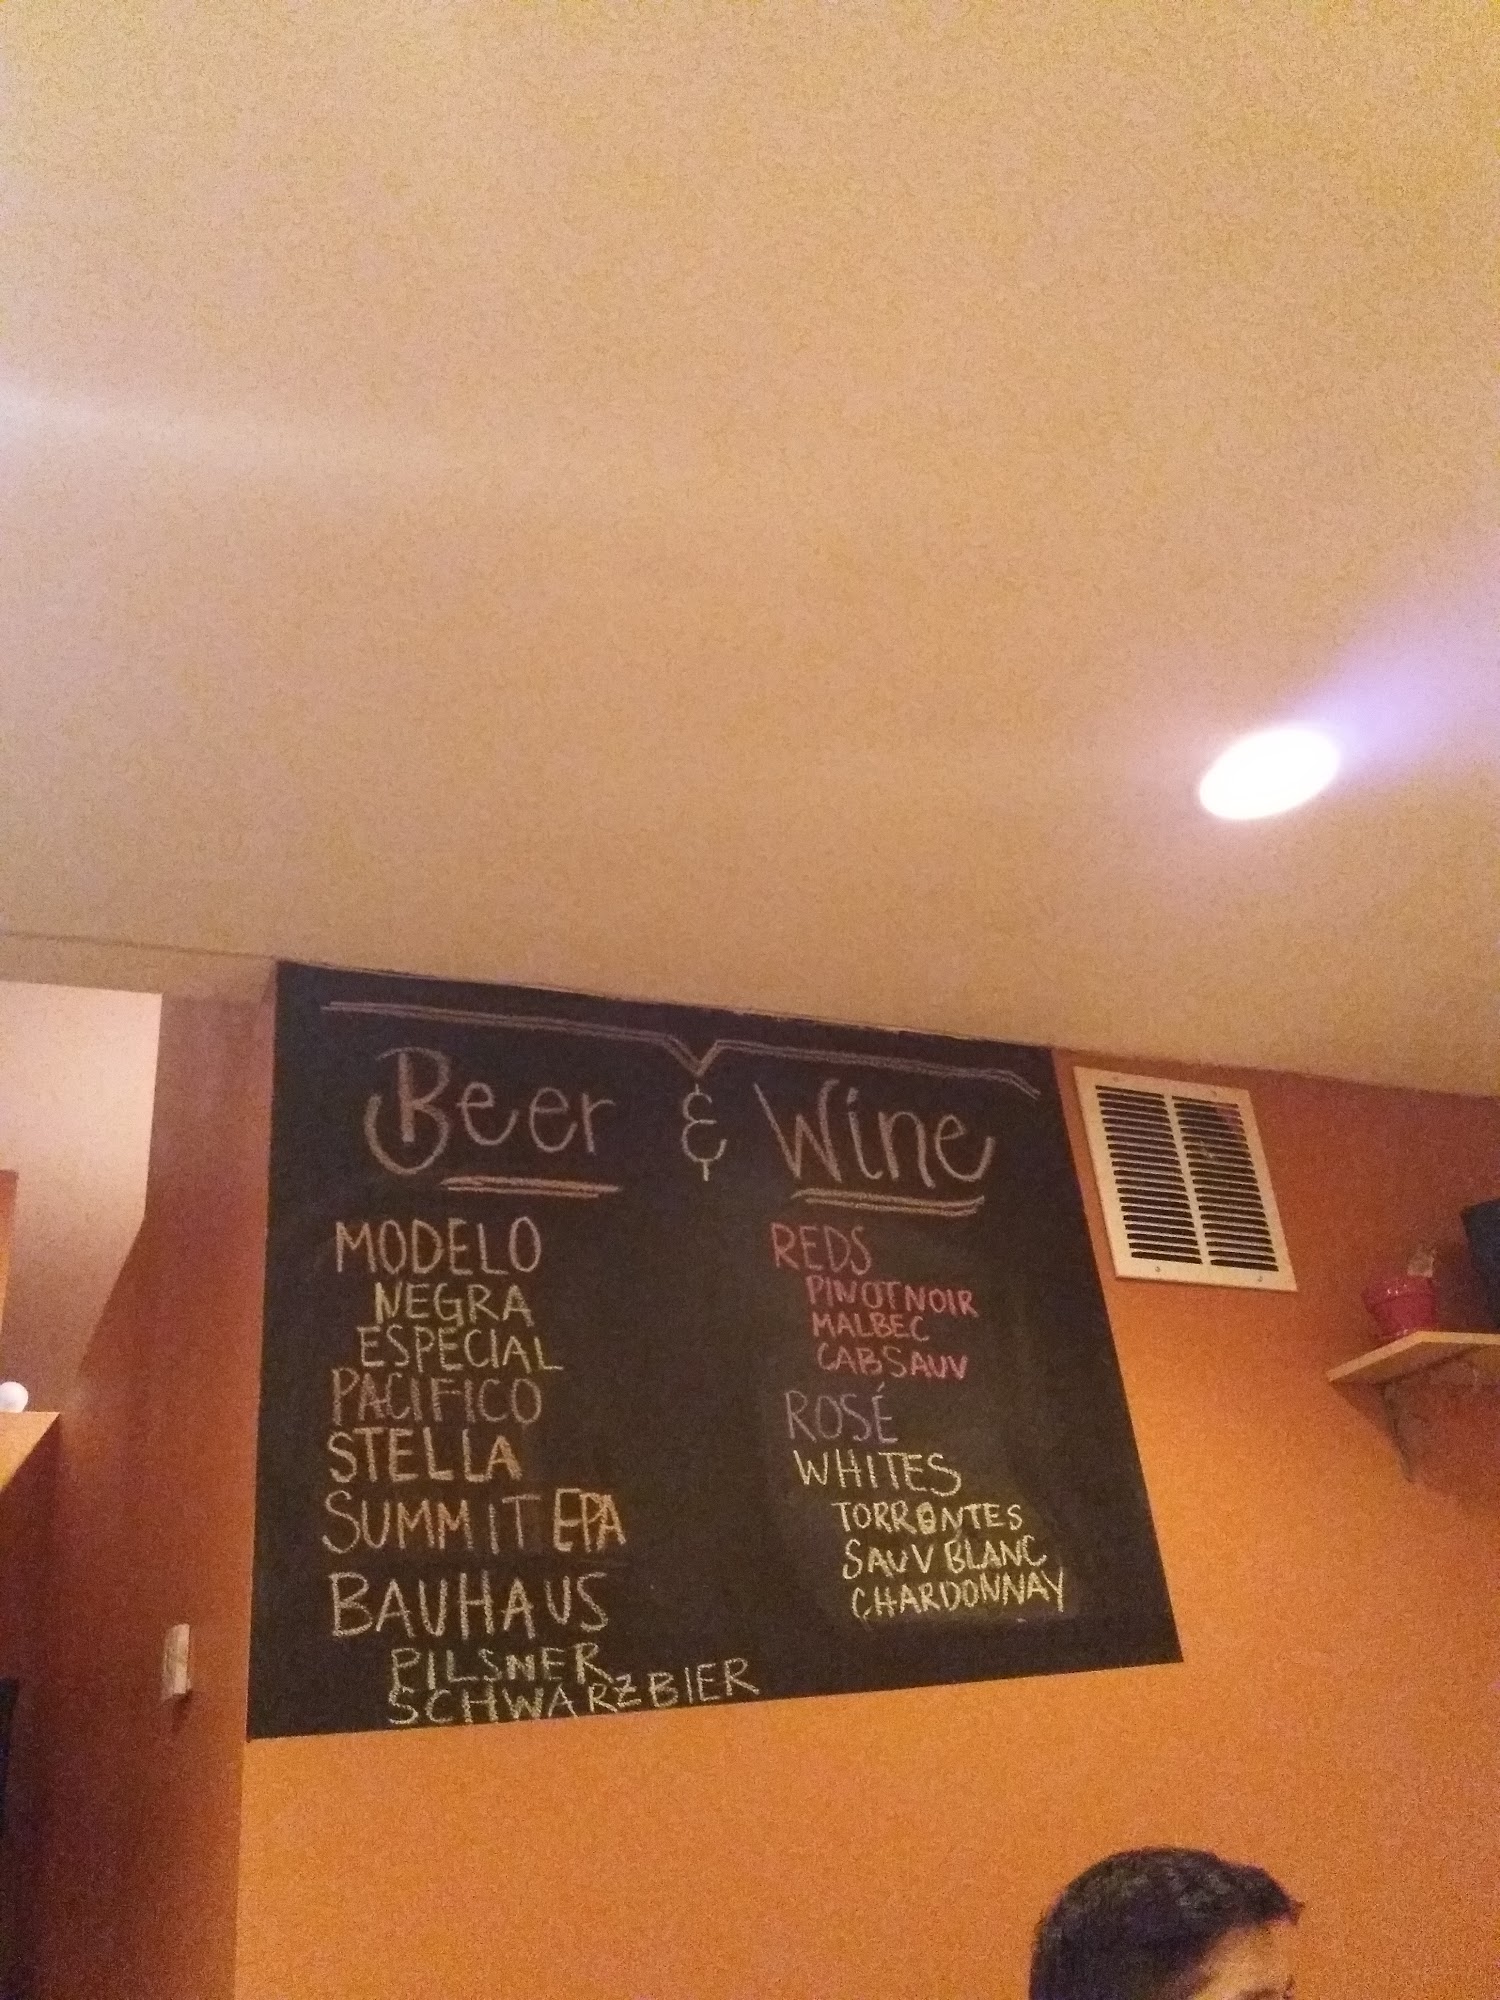 Beer & Wine
MODELO
NEGRA
ESPECIAL
PACIFICO
STELLA
SUMMIT EPA
BAUHAUS
PILSNER
SCHWARZBIER
REDS
PINOT NOIR
MALBEC
CAB SAUV
ROSÉ
WHITES
TORRONTES
SAUV BLANC
CHARDONNAY